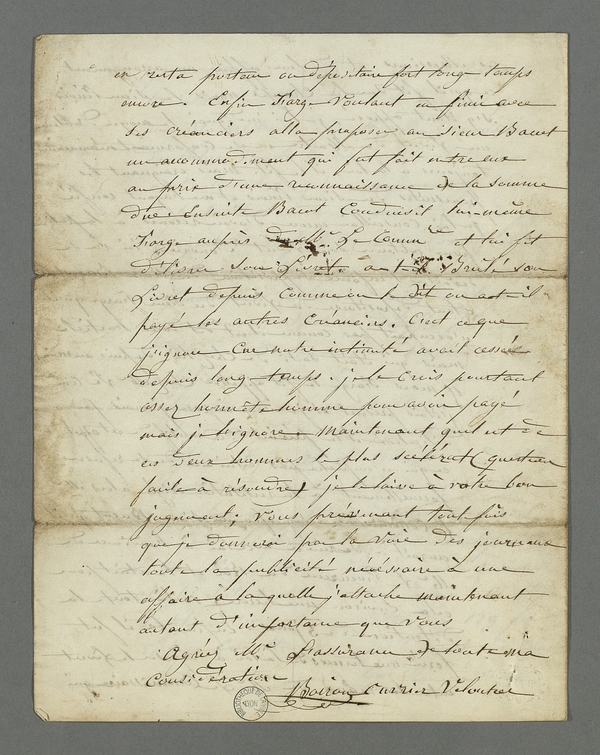 en resta porteur ou dépositaire fort long temps
encore. Enfin Farge voulant en finir avec
ses créanciers alla proposer au sieur Bacot
un accommodement qui fut fait entre eux
au prix d'une reconnaissance de la somme
due. Ensuite Bacot conduisit lui-même
Farge auprès de Mr. Le Comm.re et lui fit
délivrer son Livret. a t-il brûlé son
Livret depuis comme on le dit ou a-t-il
payé les autres créanciers. C'est ce que
j'ignore car notre intimité avait cessée
depuis long-temps. je le crois pourtant
assez honnête homme pour avoir payé
mais je l'ignore. Maintenant quel est de
ces deux hommes le plus scélérat (question
facile à résoudre) je le laisse à votre bon
jugement; vous prévenant toutefois
que je donnerai par la voie des journaux
toute la publicité nécessaire à une
affaire à la quelle j'attache maintenant
autant d'importance que vous
Agréez Mr. L'assurance de toute ma
Considération
ouvrier Veloutier